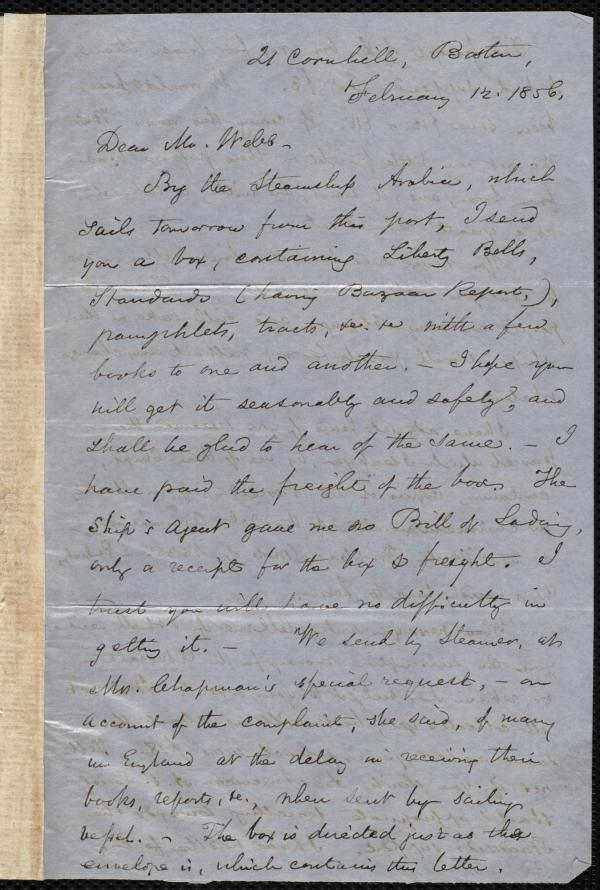 21 Cornhill, Boston,
February 12. 1856.
Dear Mr. Webb -
By the Steamship Arabia, which
sails tomorrow from this port, I send
you a box, containing Liberty Bells,
Standards (having Bazaar Report,),
pamphlets, tracts, &c. &c with a few
books to one and another. - I hope you
will get it seasonably and safely, and
shall be glad to hear of the same. - I
have paid the freight of the box. The
Ship's Agent gave me no Bill of Lading,
only a receipt for the box & freight. I
trust you will have no difficulty in
getting it. - We send by Steamer, at
Mrs. Chapman's special request, - on
account of the complaint, she said, of many
in England at the delay in receiving their
books, reports, &c., when sent by sailing
vessel. - The box is directed just as the
envelope is, which contains this letter.